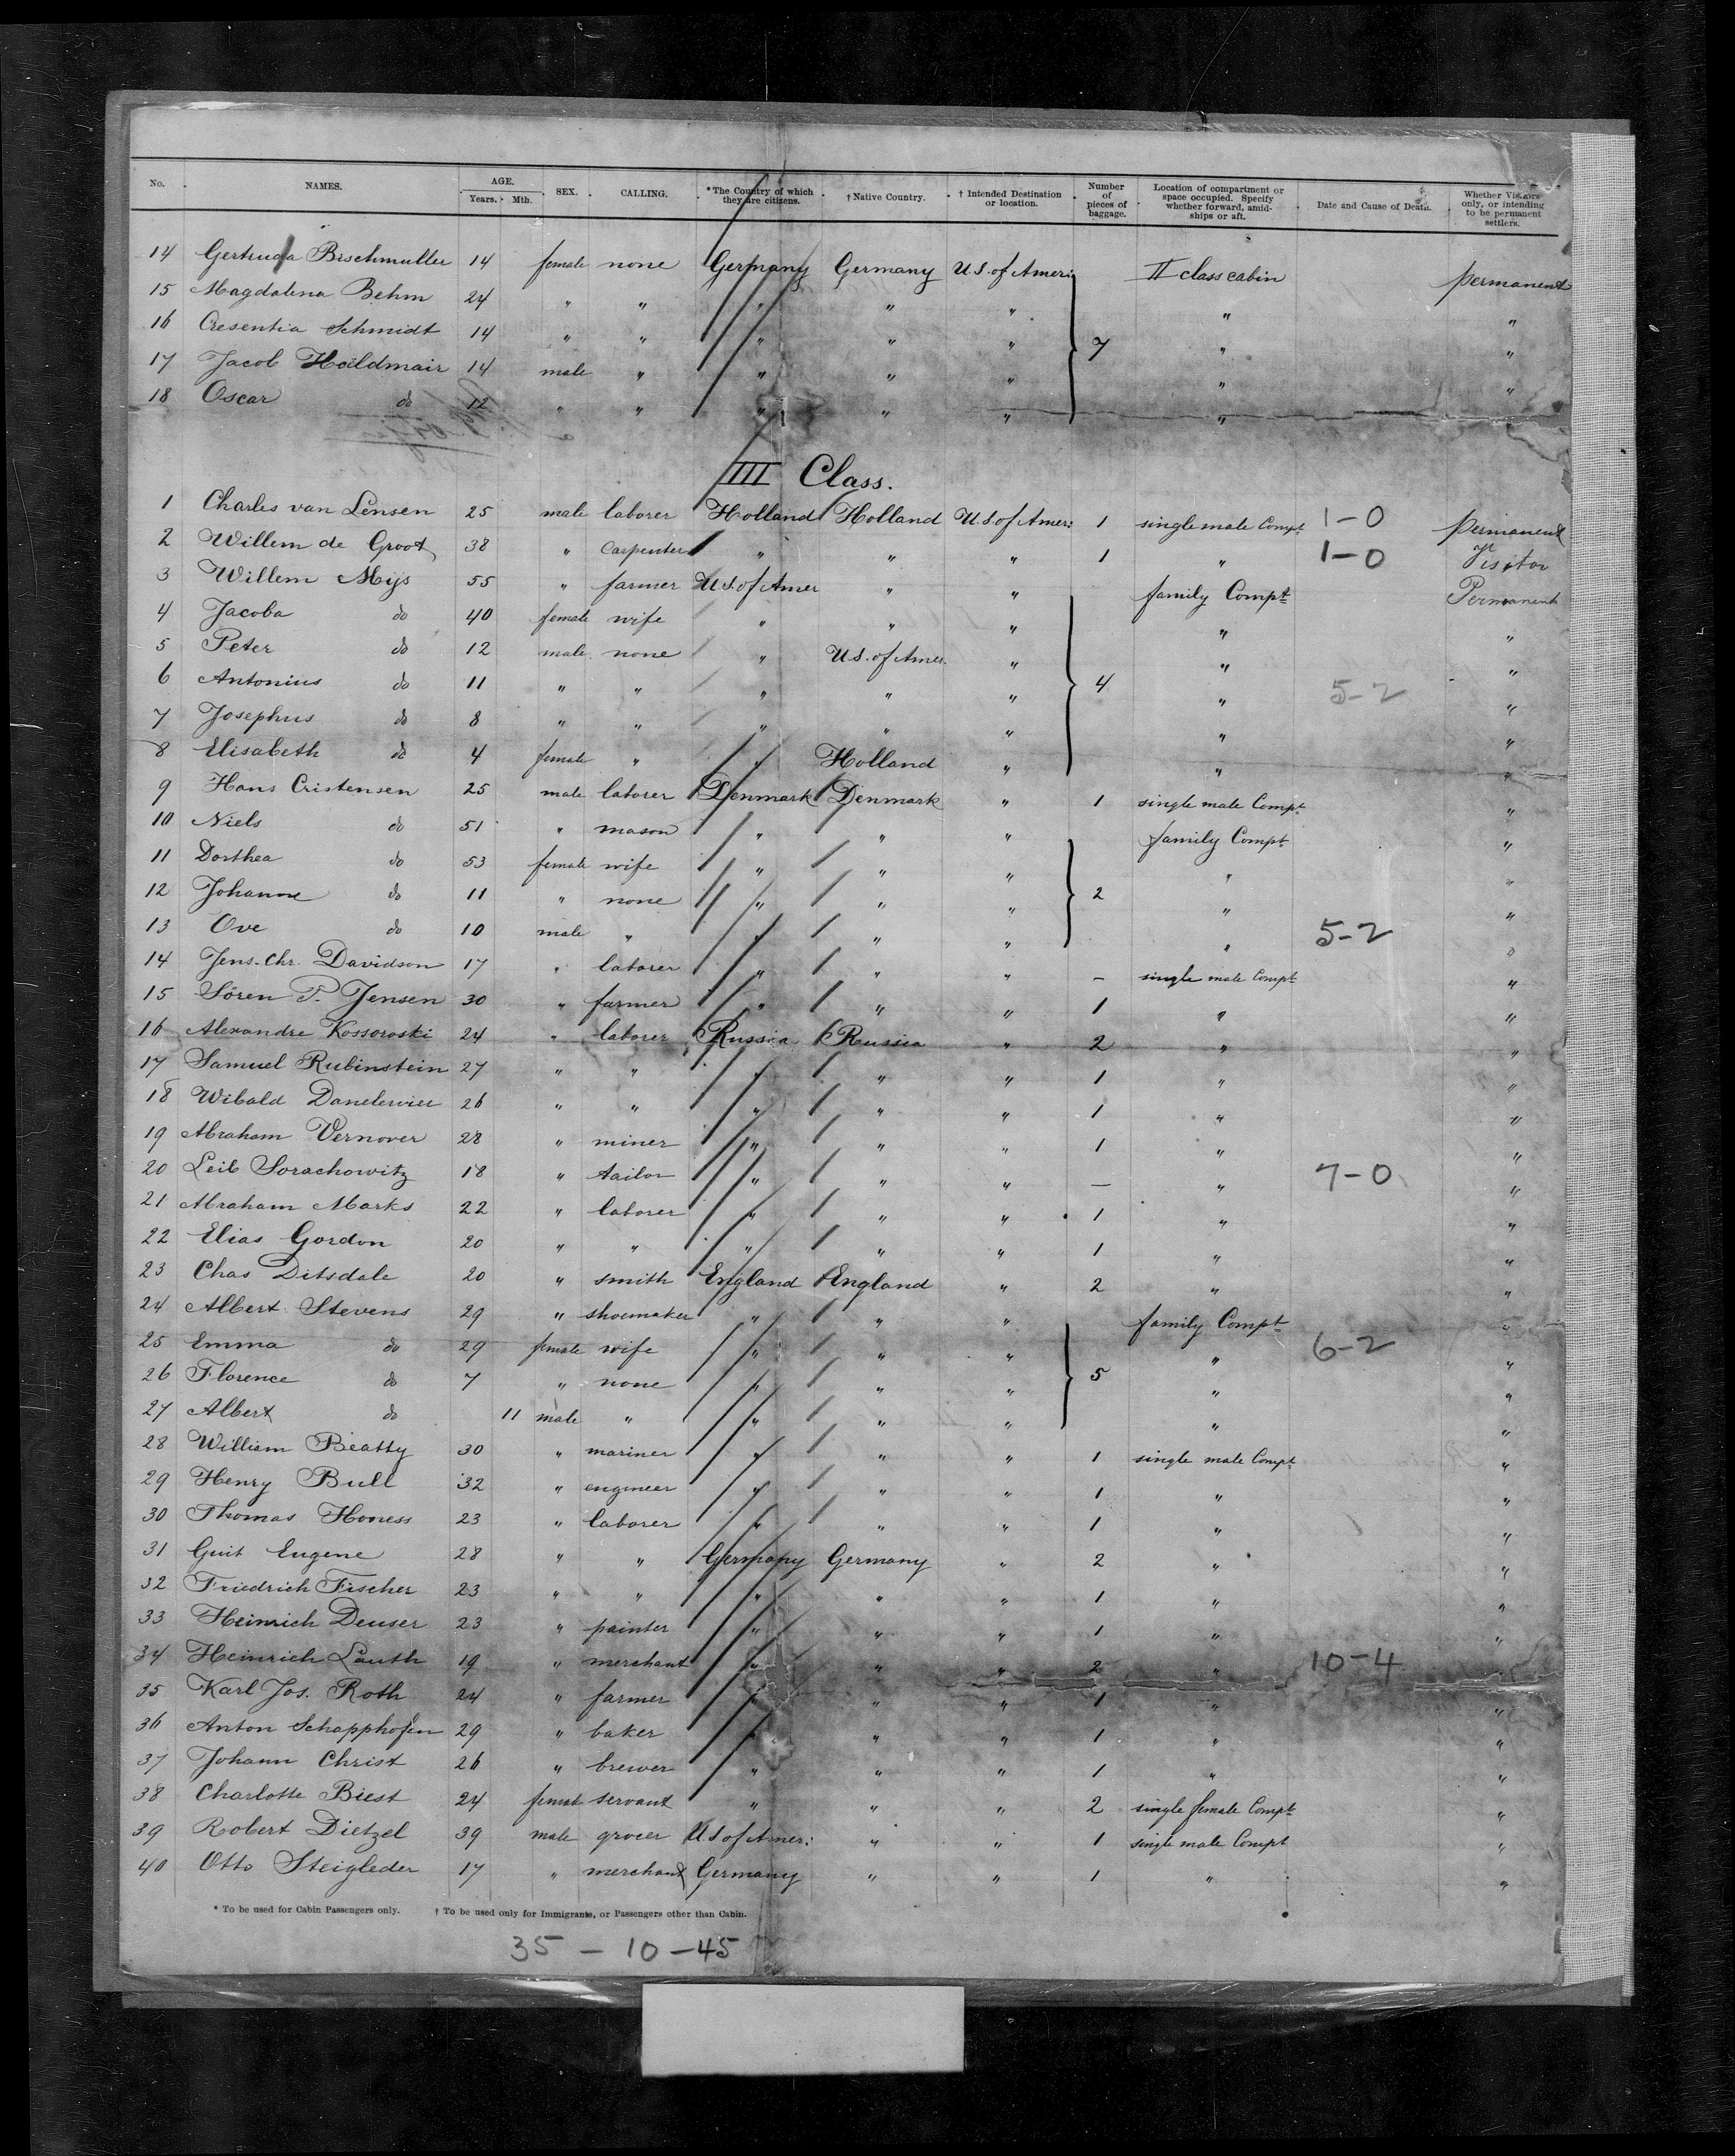 No. NAMES. AGE. Years. Mth. SEX. CALLING. *The Country of which they are citizens. †Native Country. †Intended Destination or location. Number of pieces of baggage. Location of compartment or space occupied. Specify whether forward, amidships or aft. Date and Cause of Death. Whether Visitors only, or intending to be permanent settlers.
14 Gertruda Bischmuller 14 female none Germany Germany U.S. of Ameri II class cabin permanent
15 Magdalena Behm 24 " " " " " " "
16 Cresentia Schmidt 14 " " " " " 7 " "
17 Jacob Haldmair 14 male " " " " " "
18 Oscar do 12 " " " " " "
III Class.
1 Charles van Lensen 25 male laborer Holland Holland U.S. of Amer: 1 single male Compt 1-0 permanent
2 Willem de Groot 38 " carpenter " " " 1 " 1-0 Visitor
3 Willem Mijs 55 " farmer U.S. of Amer " " family Compt Permanent
4 Jacoba do 40 female wife " " " " "
5 Peter do 12 male none " U.S. of Amer. " " "
6 Antonius do 11 " " " " " 4 " 5-2 "
7 Josephus do 8 " " " " " " "
8 Elisabeth do 4 female " " Holland " " "
9 Hans Cristensen 25 male laborer Denmark Denmark " 1 single male Compt "
10 Niels do 51 " mason " " " family Compt "
11 Dorthea do 53 female wife " " " " "
12 Johanne do 11 " none " " " 2 " "
13 Ove do 10 male " " " " " 5-2 "
14 Jens. Chr. Davidson 17 " laborer " " " - single male Compt "
15 Sören P. Jensen 30 " farmer " " " 1 " "
16 Alexandre Kossoroski 24 " laborer Russia Russia " 2 " "
17 Samuel Rubinstein 27 " " " " " 1 " "
18 Wibald Danelewier 26 " " " " " 1 " "
19 Abraham Vernover 28 " miner " " " 1 " "
20 Leib Sorachowitz 18 " tailor " " " — " 7-0 "
21 Abraham Marks 22 " laborer " " " 1 " "
22 Elias Gordon 20 " " " " " 1 " "
23 Chas Ditsdale 20 " smith England England " 2 " "
24 Albert Stevens 29 " shoemaker " " " family Compt "
25 Emma do 29 female wife " " " " 6-2 "
26 Florence do 7 " none " " " 5 " "
27 Albert do 11 male " " " " " "
28 William Beatty 30 " mariner " " " 1 single male Compt "
29 Henry Bull 32 " engineer " " " 1 " "
30 Thomas Honess 23 " laborer " " " 1 " "
31 Guit Eugene 28 " " Germany Germany " 2 " "
32 Friedrich Fischer 23 " " " " " 1 " "
33 Heinrich Deuser 23 " painter " " " 1 " "
34 Heinrich Lauth 19 " merchant " " " 2 " 10-4 "
35 Karl Jos. Roth 24 " farmer " " " 1 " "
36 Anton Schapphofen 29 " baker " " " 1 " "
37 Johann Christ 26 " brewer " " " 1 " "
38 Charlotte Biest 24 female servant " " " 2 single female Compt "
39 Robert Dietzel 39 male grocer U.S of Amer: " " 1 single male Compt "
40 Otto Steigleder 17 " merchant Germany " " 1 " "
* To be used for Cabin Passengers only. † To be used only for Immigrants, or Passengers other than Cabin.
35 - 10 - 45